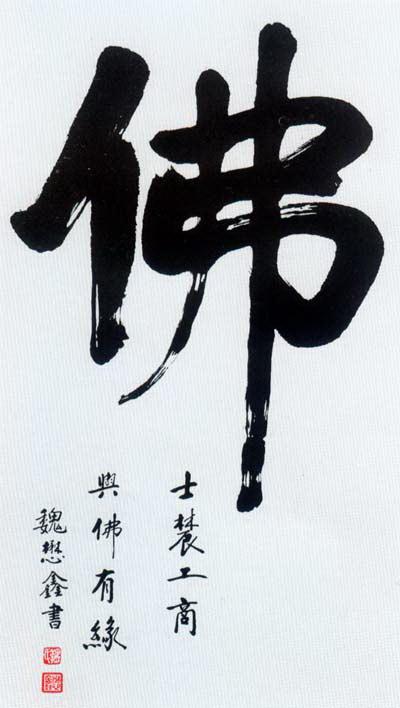 佛
士農工商
與佛有緣
魏懋鑫書